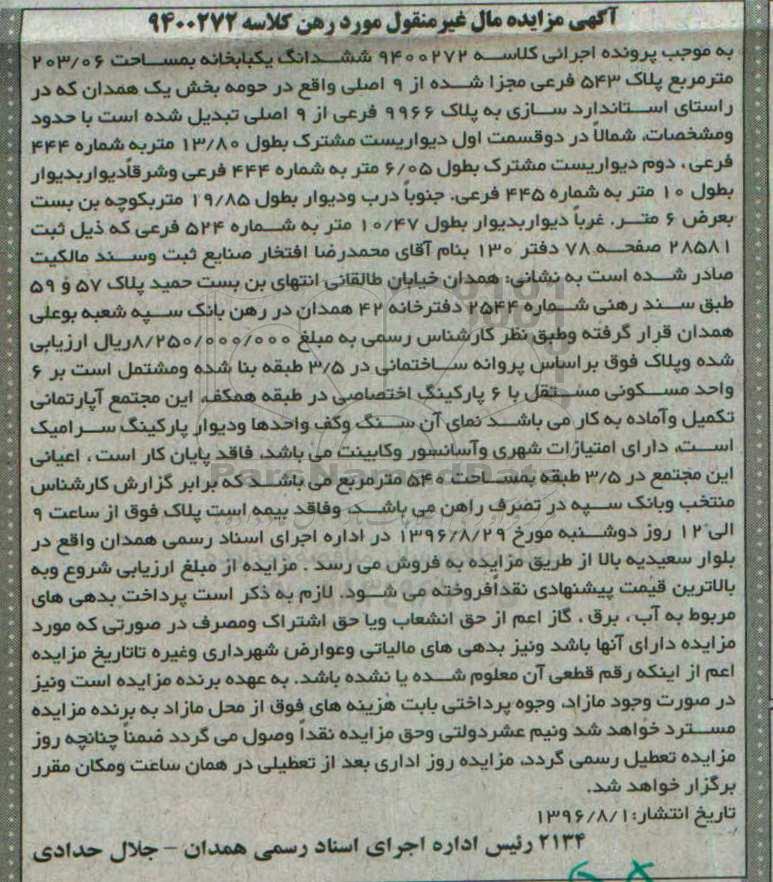 آگهی مزایده مال غیرمنقول مورد رهن کلاسه ۹۴۰۰۲۷۲
به موجب پرونده اجرائی کلاسه ۹۴۰۰۲۷۲ ششدانگ یکبابخانه بمساحت ۲۰۳/۰۶
مترمربع پلاک ۵۴۳ فرعی مجزا شده از ۹ اصلی واقع در حومه بخش یک همدان که در
راستای استاندارد سازی به پلاک ۹۹۶۶ فرعی از ۹ اصلی تبدیل شده است با حدود
ومشخصات، شمالاً در دوقسمت اول دیواریست مشترک بطول ۱۳/۸۰ متربه شماره ۴۴۴
فرعی، دوم دیواریست مشترک بطول ۶/۰۵ متر به شماره ۴۴۴ فرعی وشرقاًدیواربدیوار
بطول ۱۰ متر به شماره ۴۴۵ فرعی، جنوباً درب ودیوار بطول ۱۹/۸۵ متربکوچه بن بست
بعرض ۶ متر، غرباً دیواربدیوار بطول ۱۰/۴۷ متر به شماره ۵۲۴ فرعی که ذیل ثبت
۲۸۵۸۱ صفحه ۷۸ دفتر ۱۳۰ بنام آقای محمدرضا افتخار صنایع ثبت وسند مالکیت
صادر شده است به نشانی: همدان خیابان طالقانی انتهای بن بست حمید پلاک ۵۷ و ۵۹
طبق سند رهنی شماره ۲۵۴۴ دفترخانه ۴۲ همدان در رهن بانک سپه شعبه بوعلی
همدان قرار گرفته وطبق نظر کارشناس رسمی به مبلغ ۸/۲۵۰/۰۰۰/۰۰۰ریال ارزیابی
شده وپلاک فوق براساس پروانه ساختمانی در ۳/۵ طبقه بنا شده ومشتمل است بر ۶
واحد مسکونی مستقل با ۶ پارکینگ اختصاصی در طبقه همکف، این مجتمع آپارتمانی
تکمیل وآماده به کار می باشد نمای آن سنگ وکف واحدها ودیوار پارکینگ سرامیک
است، دارای امتیازات شهری وآسانسور وکابینت می باشد، فاقد پایان کار است، اعیانی
این مجتمع در ۳/۵ طبقه بمساحت ۵۴۰ مترمربع می باشد که برابر گزارش کارشناس
منتخب وبانک سپه در تصرف راهن می باشد، وفاقد بیمه است پلاک فوق از ساعت ۹
الی ۱۲ روز دوشنبه مورخ ۱۳۹۶/۸/۲۹ در اداره اجرای اسناد رسمی همدان واقع در
بلوار سعیدیه بالا از طریق مزایده به فروش می رسد . مزایده از مبلغ ارزیابی شروع وبه
بالاترین قیمت پیشنهادی نقداًفروخته می شود. لازم به ذکر است پرداخت بدهی های
مربوط به آب، برق، گاز اعم از حق انشعاب ویا حق اشتراک ومصرف در صورتی که مورد
مزایده دارای آنها باشد ونیز بدهی های مالیاتی وعوارض شهرداری وغیره تاتاریخ مزایده
اعم از اینکه رقم قطعی آن معلوم شده یا نشده باشد، به عهده برنده مزایده است ونیز
در صورت وجود مازاد، وجوه پرداختی بابت هزینه های فوق از محل مازاد به برنده مزایده
مسترد خواهد شد ونیم عشردولتی وحق مزایده نقداً وصول می گردد ضمناً چنانچه روز
مزایده تعطیل رسمی گردد، مزایده روز اداری بعد از تعطیلی در همان ساعت ومکان مقرر
برگزار خواهد شد.
تاریخ انتشار:۱۳۹۶/۸/۱
۲۱۳۴ رئیس اداره اجرای اسناد رسمی همدان – جلال حدادی